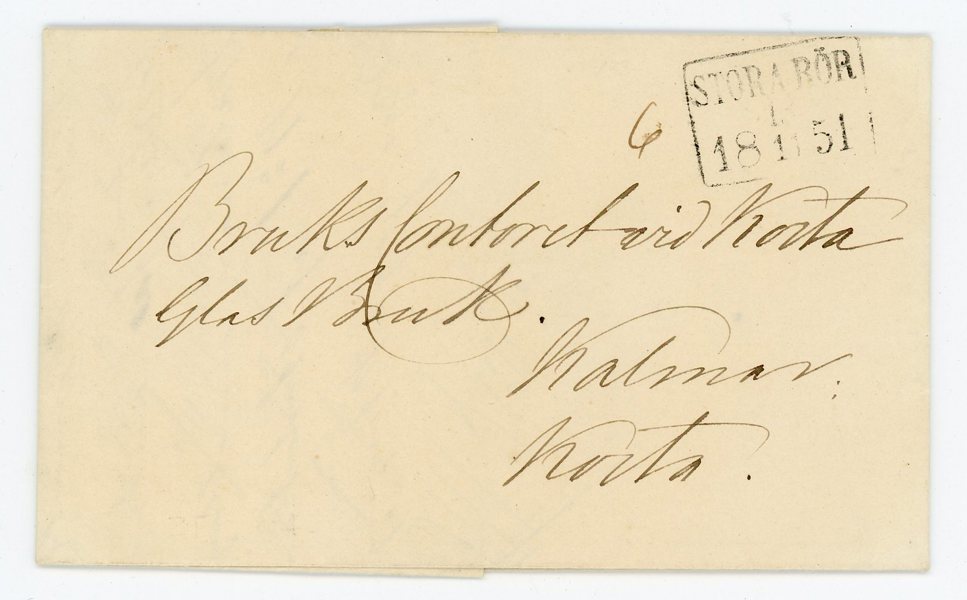 STORA RÖR
18 11 51
6
Bruks Contoret vid Kosta
Glas Bruk.
Kalmar.
Kosta.